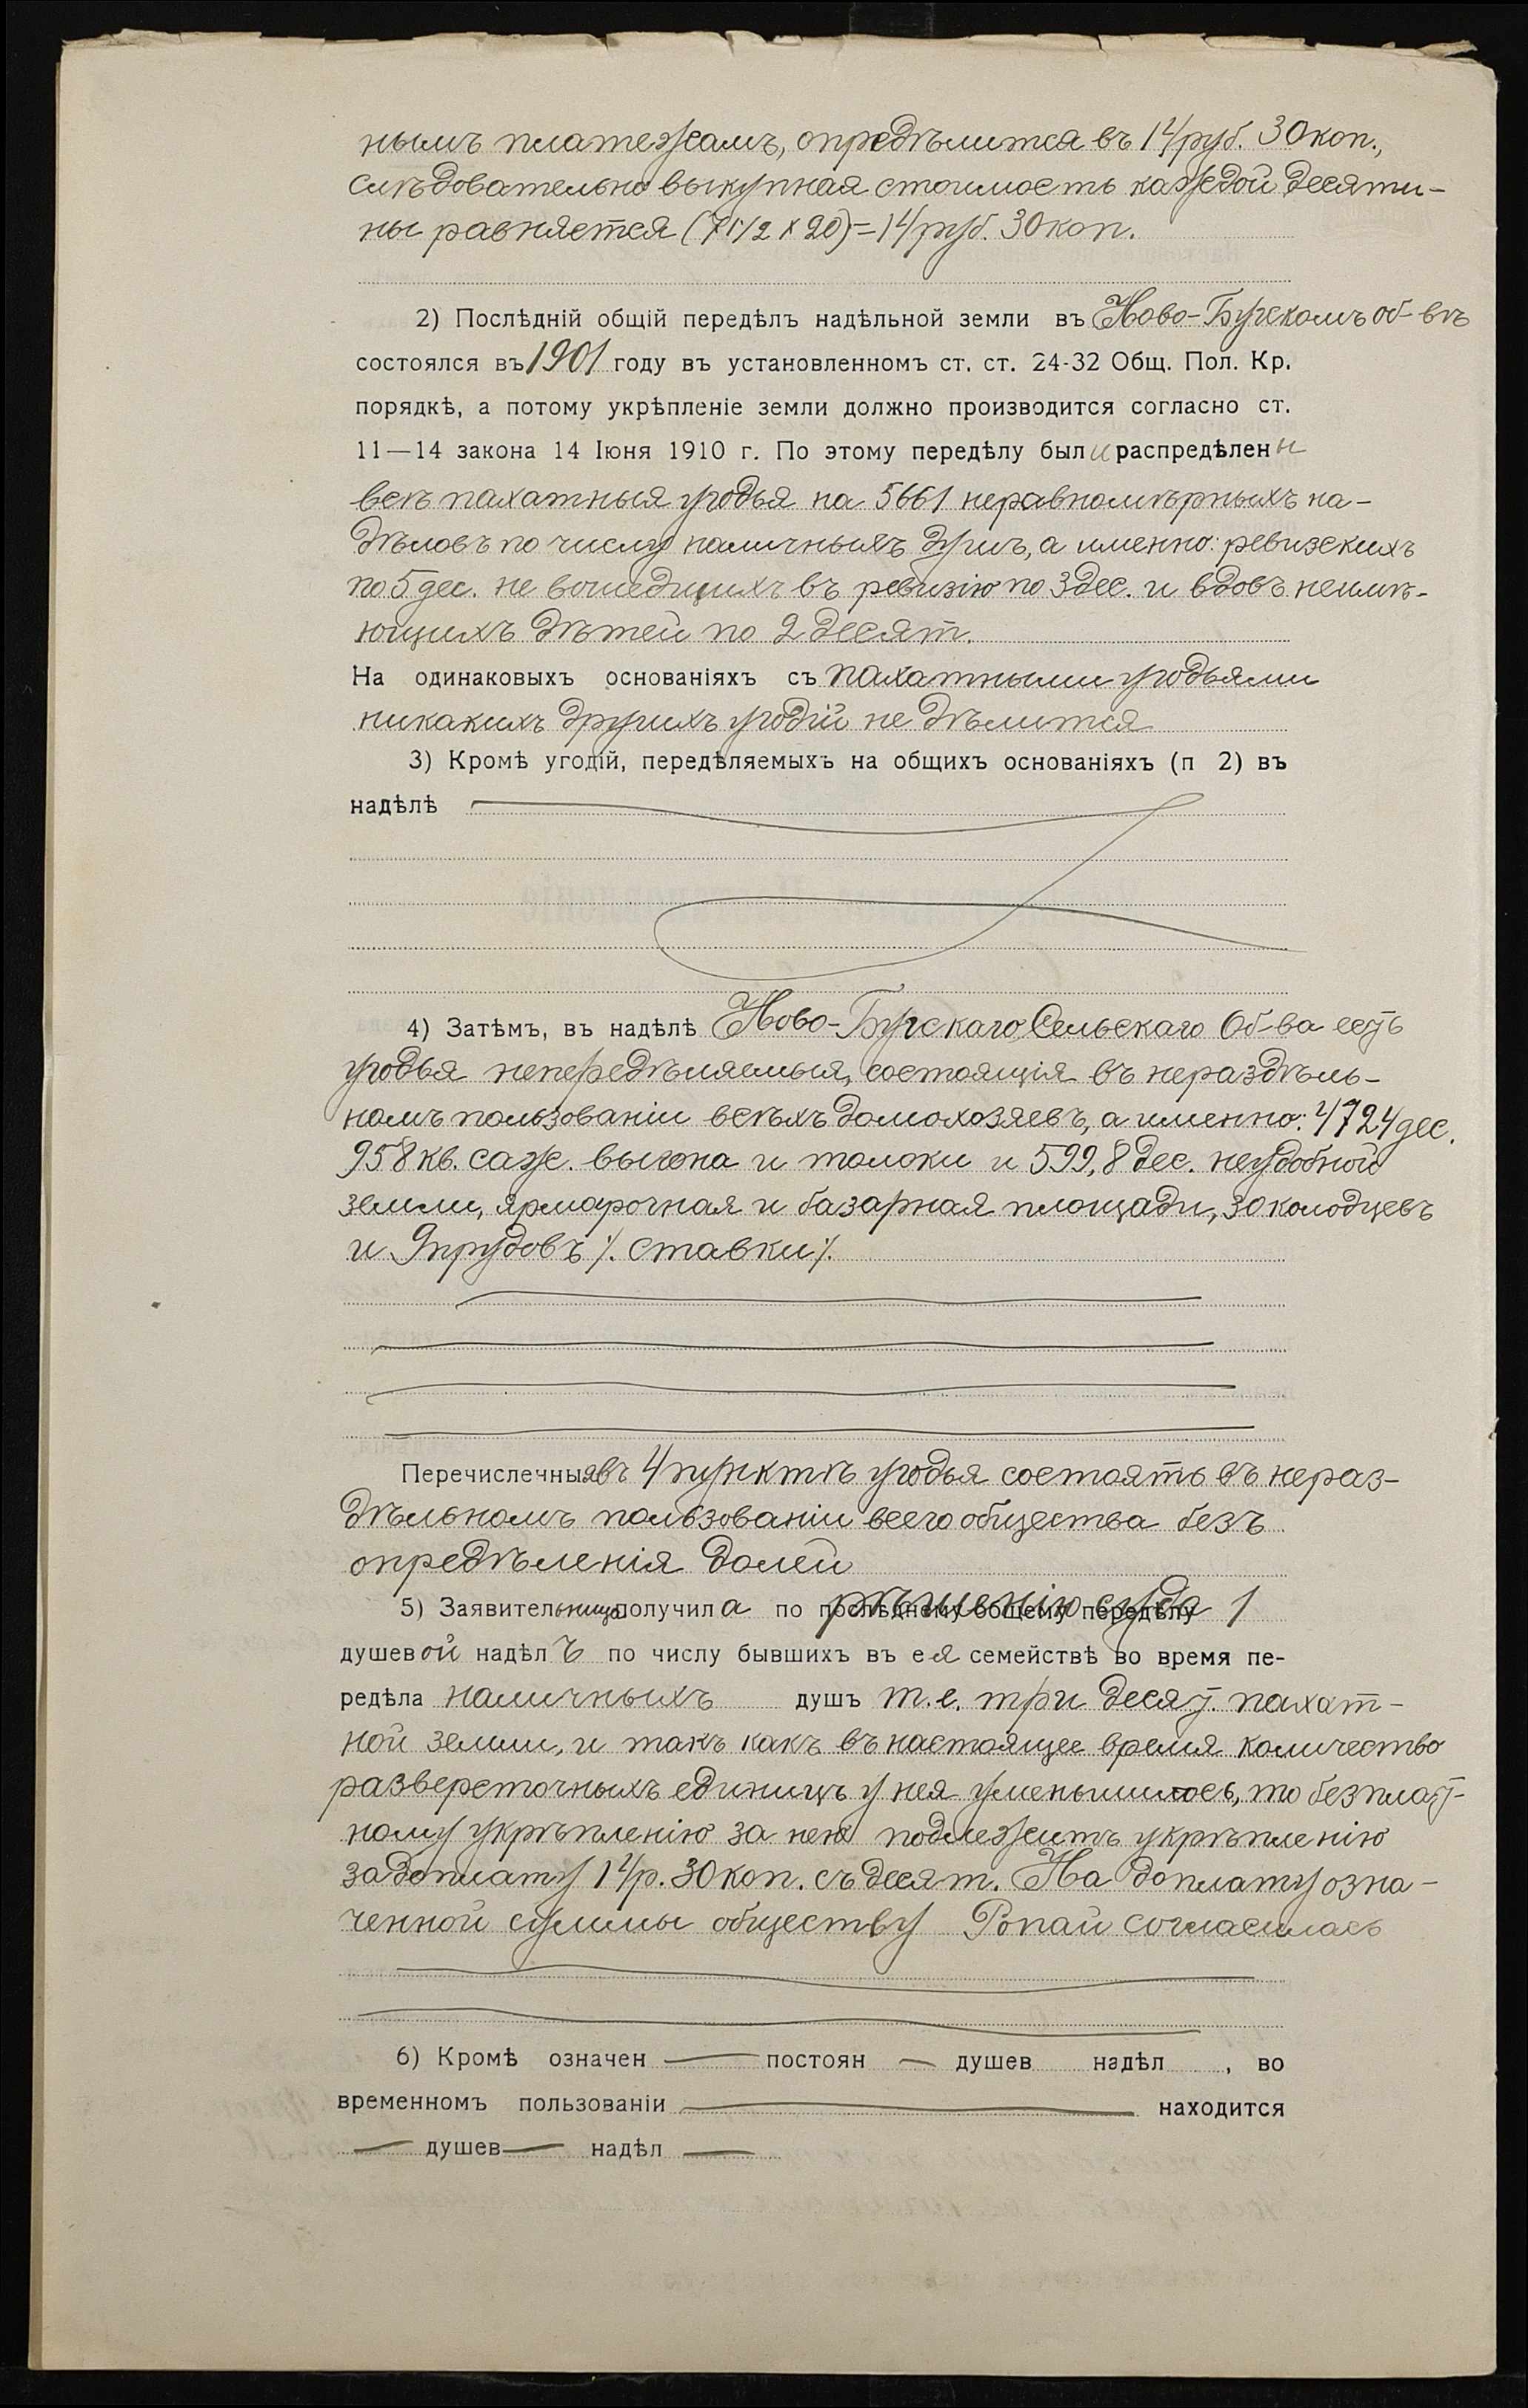 нымъ платежамъ, опредѣлится въ 14 руб. 30 коп.,
слѣдовательно выкупная стоимость каждой десяти-
ны равняется (71 1/2 х 20) = 14 руб. 30 коп.
2) Послѣдній общій передѣлъ надѣльной земли въ Ново-Бугскомъ об-вѣ
состоялся въ 1901 году въ установленномъ ст. ст. 24-32 Общ. Пол. Кр.
порядкѣ, а потому укрѣпленіе земли должно производится согласно ст.
11—14 закона 14 Іюня 1910 г. По этому передѣлу были распредѣлены
всѣ пахатныя угодья на 5661 неравномѣрныхъ на-
дѣловъ по числу наличныхъ душъ, а именно: ревизскихъ
по 5 дес. не вошедшихъ въ ревизію по 3 дес. и вдовъ неимѣ-
ющихъ дѣтей по 2 десят.
На одинаковыхъ основаніяхъ съ пахатными угодьями
никакихъ другихъ угодій не дѣлится
3) Кромѣ угодій, передѣляемыхъ на общихъ основаніяхъ (п 2) въ
надѣлѣ
4) Затѣмъ, въ надѣлѣ Ново-Бугскаго Сельскаго Об-ва есть
угодья непередѣляемыя, состоящія въ нераздѣль-
номъ пользованіи всѣхъ домохозяевъ, а именно: 4724 дес.
958 кв. саж. выгона и толоки и 599,8 дес. неудобной
земли, ярмарочная и базарная площади, 30 колодцевъ
и 9 прудовъ /. ставки /.
Перечислечныя въ 4 пунктѣ угодья состоятъ въ нераз-
дѣльномъ пользованіи всего общества безъ
опредѣленія долей
5) Заявительница получила по послѣднему общему передѣлу рѣшенію суда 1
душевой надѣлъ по числу бывшихъ въ ея семействѣ во время пе-
редѣла наличныхъ душъ т.е. три десят. пахат-
ной земли, и такъ какъ въ настоящее время количество
разверсточныхъ единицъ у нея уменьшилось, то безплат-
ному укрѣпленію за нею подлежитъ укрѣпленію
за доплату 14 р. 30 коп. съ десят. На доплату озна-
ченной суммы обществу Ропай согласилась
6) Кромѣ означен — постоян — душев надѣл , во
временномъ пользованіи — находится
— душев — надѣл —